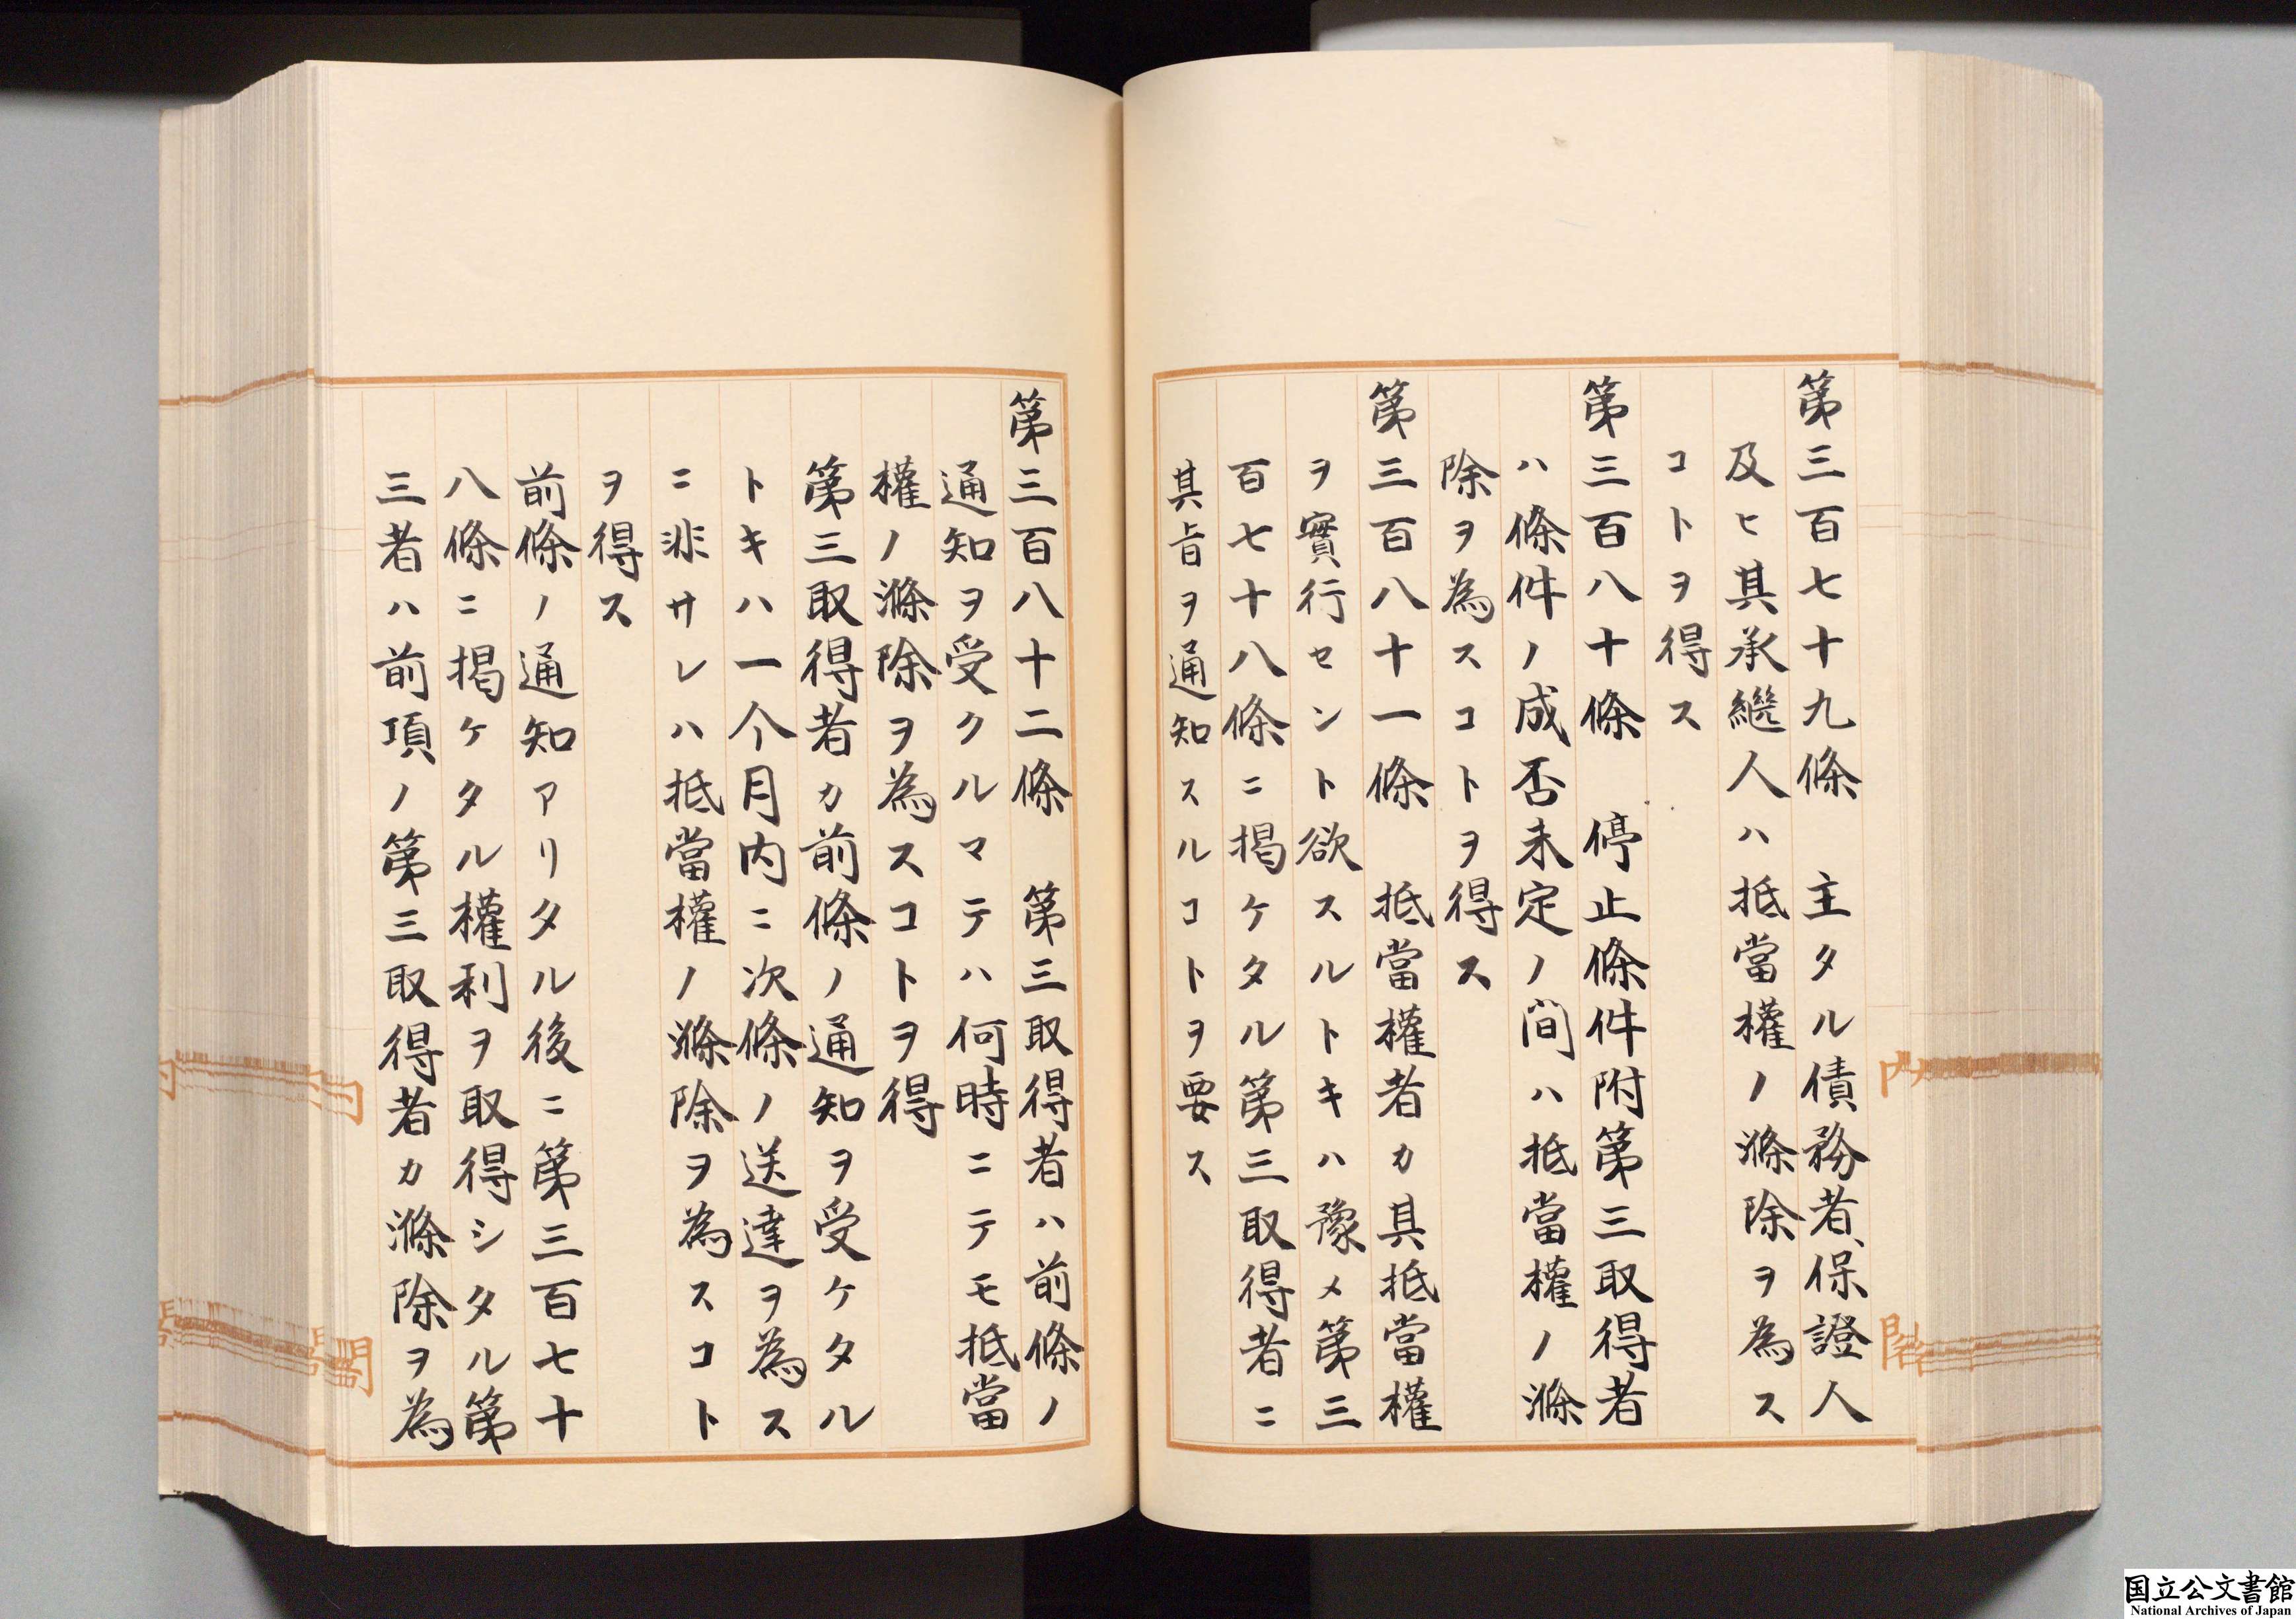 第三百七十九條　主タル債務者、保證人
及ヒ其承繼人ハ抵當權ノ滌除ヲ為ス
コトヲ得ス
第三百八十條　停止條件附第三取得者
ハ條件ノ成否未定ノ間ハ抵當權ノ滌
除ヲ為スコトヲ得ス
第三百八十一條　抵當權者カ其抵當權
ヲ實行セント欲スルトキハ豫メ第三
百七十八條ニ掲ケタル第三取得者ニ
其旨ヲ通知スルコトヲ要ス
第三百八十二條　第三取得者ハ前條ノ
通知ヲ受クルマテハ何時ニテモ抵當
權ノ滌除ヲ為スコトヲ得
第三取得者カ前條ノ通知ヲ受ケタル
トキハ一个月内ニ次條ノ送達ヲ為ス
ニ非サレハ抵當權ノ滌除ヲ為スコト
ヲ得ス
前條ノ通知アリタル後ニ第三百七十
八條ニ掲ケタル權利ヲ取得シタル第
三者ハ前項ノ第三取得者カ滌除ヲ為
国立公文書館
National Archives of Japan